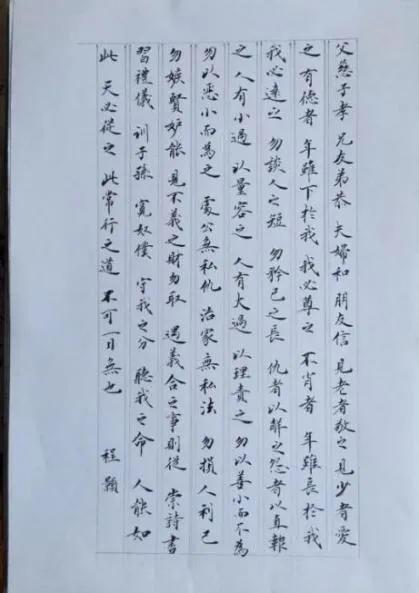 父慈子孝 兄友弟恭 夫婦和 朋友信 見老者敬之 見少者愛
之 有德者 年雖下於我 我必尊之 不肖者 年雖長於我
我必遠之 勿談人之短 勿矜己之長 仇者以解之 怨者以直報
之 人有小過 以量容之 人有大過 以理責之 勿以善小而不為
勿以惡小而為之 處公無私仇 治家無私法 勿損人利己
勿嫉賢妒能 見不義之財勿取 遇義合之事則從 崇詩書
習禮儀 訓子孫 寬奴僕 守我之分 聽我之命 人能如
此 天必從之 此常行之道 不可一日無也 程顥